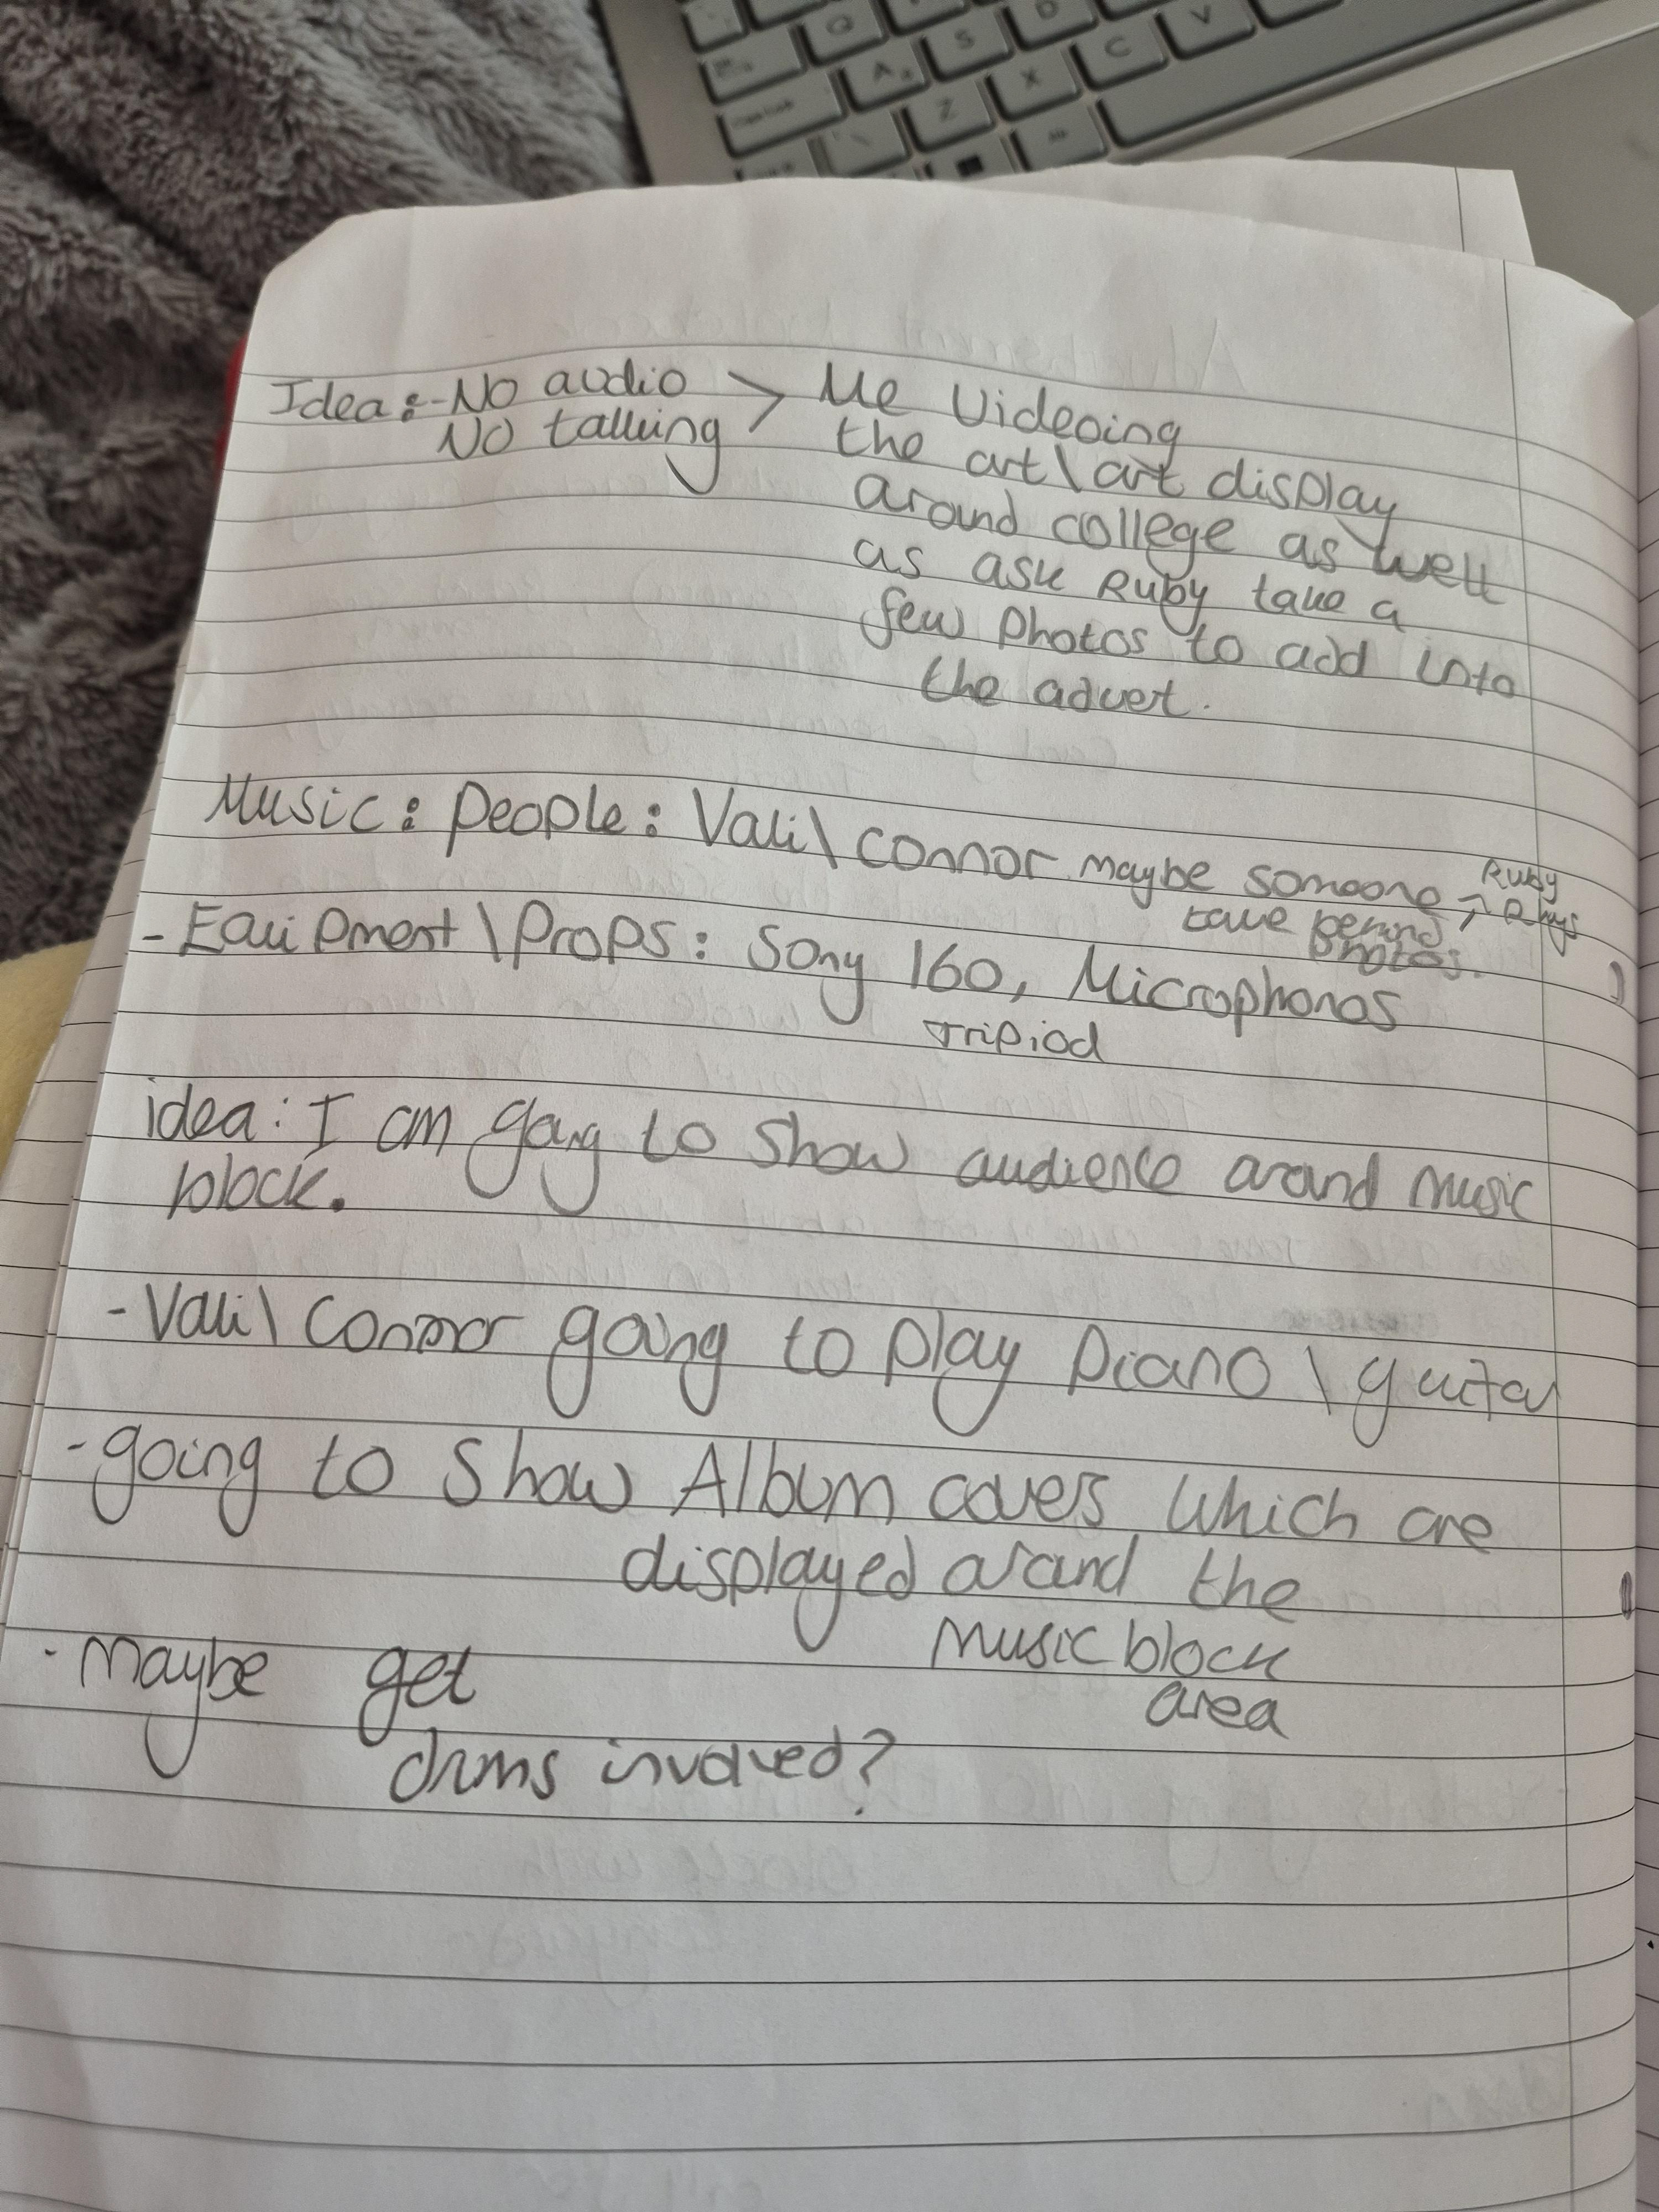 Idea:- No audio > Me Videoing
No talking the art\art display
around college as well
as ask Ruby take a
few photos to add into
the advert.
Music: people: Vali\ Connor maybe someone → Ruby
take behind Rhys
photos.
- Equipment\Props: Sony 160, Microphones
Tripiod
idea: I am going to show audience around music
block.
- Vali\ Connor going to play piano \ guitar
- going to show Album covers which are
displayed around the
music block
area
- maybe get
drums involved?